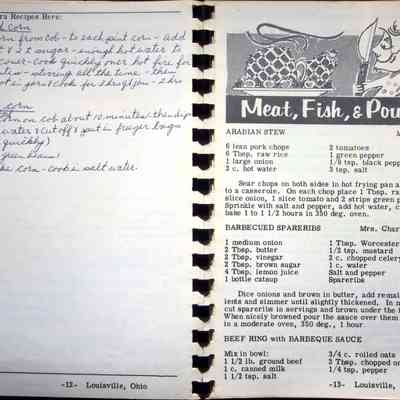 ra Recipes Here:
Corn
corn from cob - to each pint corn - add
sugar - enough hot water to
cover - Cook quickly over hot fire for
stirring all the time - then
corn
corn on cob about 10 minutes, then dip
water & cut off & put in freezer bags
quickly)
corn - cook in salt water.
-12- Louisville, Ohio
Meat, Fish, & Pou
ARABIAN STEW
6 lean pork chops
6 Tbsp. raw rice
1 large onion
3 c. hot water
2 tomatoes
1 green pepper
1/8 tsp. black pepp
3 tsp. salt
Sear chops on both sides in hot frying pan a
to a casserole. On each chop place 1 Tbsp. ra
slice onion, 1 slice tomato and 2 strips green p
Sprinkle with salt and pepper, add hot water, c
bake 1 to 1 1/2 hours in 350 deg. oven.
BARBECUED SPARERIBS Mrs. Char
1 medium onion
2 Tbsp. butter
2 Tbsp. vinegar
2 Tbsp. brown sugar
4 Tbsp. lemon juice
1 bottle catsup
1 Tbsp. Worcester
1/2 tsp. mustard
2 c. chopped celery
1 c. water
Salt and pepper
Spareribs
Dice onions and brown in butter, add remain
ients and simmer until slightly thickened. In m
cut spareribs in servings and brown under the b
When nicely browned pour the sauce over them
in a moderate oven, 350 deg., 1 hour
BEEF RING with BARBEQUE SAUCE
Mix in bowl:
1 1/2 lb. ground beef
1 c. canned milk
1 1/2 tsp. salt
3/4 c. rolled oats
3 Tbsp. chopped on
1/4 tsp. pepper
-13- Louisville,